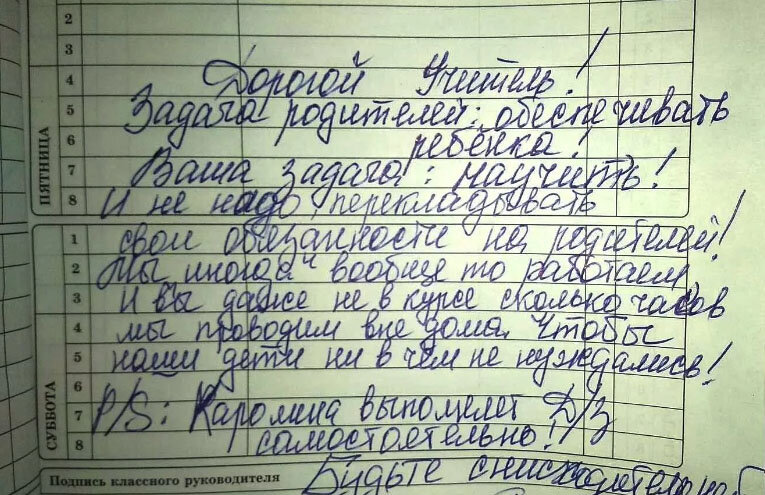 2
3
4
Дорогой Учитель!
5
Задача родителей: обеспечивать
6
ребёнка!
7
Ваша задача: научить!
8
И не надо перекладывать
ПЯТНИЦА
1
свои обязанности на родителей!
2
Мы иногда вообще то работаем
3
И вы даже не в курсе сколько часов
4
мы проводим вне дома. Чтобы
5
наши дети ни в чем не нуждались!
6
P/S: Каролина выполнеет Д/З
7
8
самостоятельно!
СУББОТА
Подпись классного руководителя
Будьте